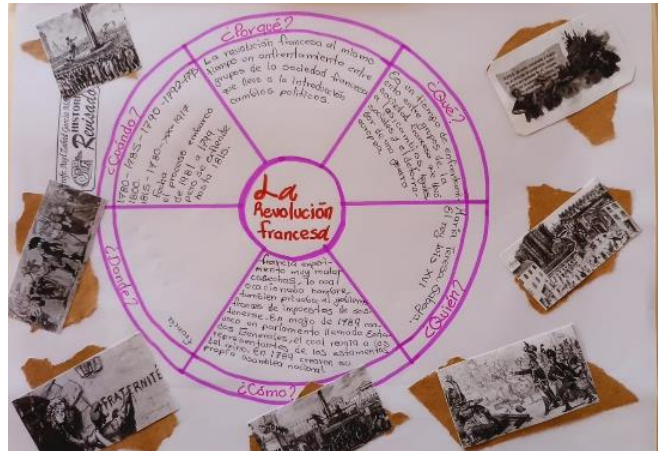 La
Revolución
francesa
¿Por qué?
La revolución francesa al mismo
tiempo un enfrentamiento entre
grupos de la sociedad francesa
que llevo a la introducción
cambios políticos.
¿Qué?
Es un tiempo de enfrentam
iento entre grupos de la
sociedad francesa que
sociales y el
por de una guerra
europea
¿Quién?
María Teresa
El rey luis XVI
¿Cómo?
francia experi-
mento muy malas
cosechas, lo cual
ocacionaba hambre,
tambien privaba al gobierno
frances de impuestos de sos-
tenerse. En mayo de 1789 co
un parlamento llamado Esta-
dos Generales, el cual reunía a los
representantes de los estamentos
del reino. En 1789 crearon su
propia asamblea nacional
¿Donde?
francia
¿Cuándo?
1780-1785-1790-1792-1795
1800
1815-1780-
fecha
el proceso embarco
de 1981 a 1799
pero se extiende
hasta 1815.
HISTORIA
Revisado
FRATERNITÉ